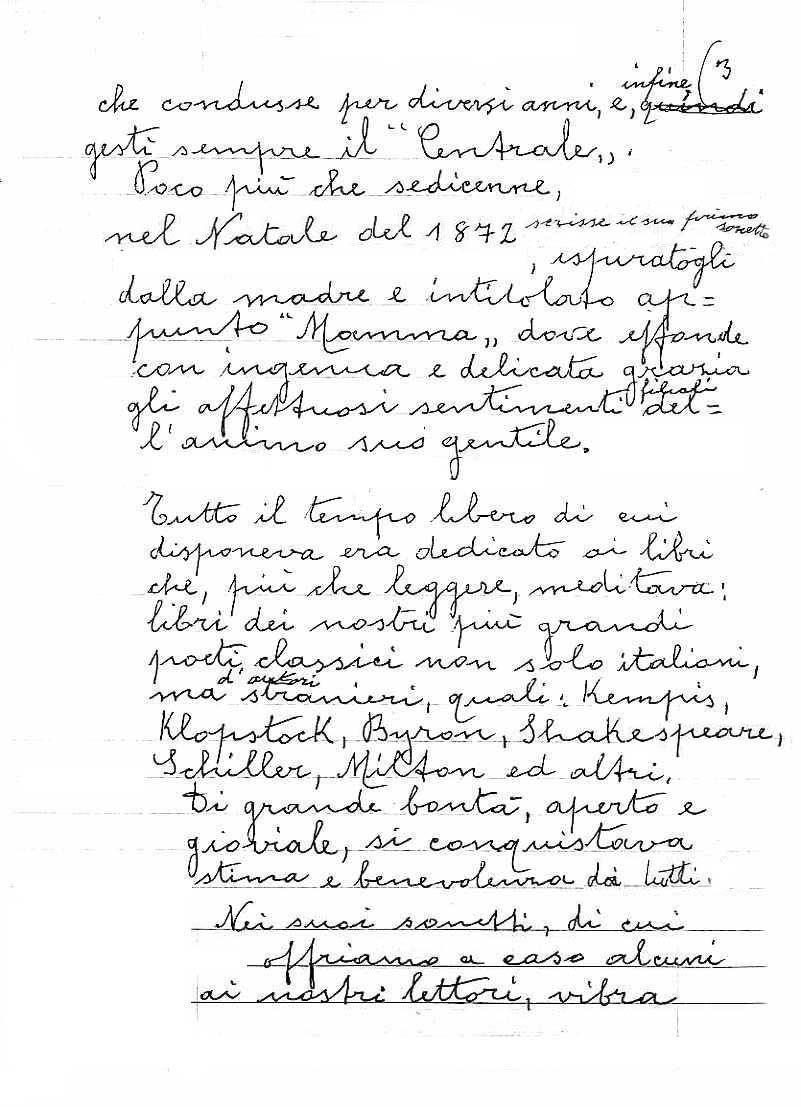 (3
infine,
che condusse per diversi anni, e, quindi
gestì sempre il "Centrale„.
Poco più che sedicenne,
nel Natale del 1872 scrisse il suo primo
sonetto
, ispiratogli
dalla madre e intitolato ap=
punto "Mamma„ dove effonde
con ingenua e delicata grazia
filiali
gli affettuosi sentimenti del=
l'animo suo gentile.
Tutto il tempo libero di cui
disponeva era dedicato ai libri
che, più che leggere, meditava:
libri dei nostri più grandi
poeti classici non solo italiani,
d'autori
ma stranieri, quali: Kempis,
Klopstock, Byron, Shakespeare,
Schiller, Milton ed altri.
Di grande bontà, aperto e
gioviale, si conquistava
stima e benevolenza da tutti.
Nei suoi sonetti, di cui
offriamo a caso alcuni
ai nostri lettori, vibra